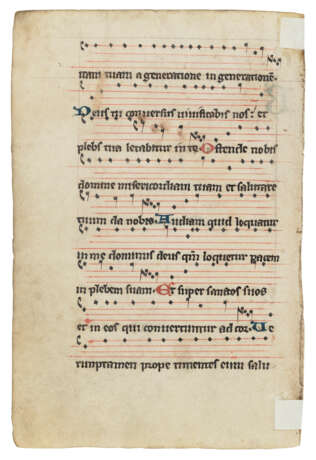 iram tuam a generatione in generatione
Deus tu conversus vivificabis nos: et
plebs tua letabitur in te Ostende nobis
domine misericordiam tuam et salutare
tuum da nobis Audiam quid loquatur
in me dominus deus qm loquetur pacem
in plebem suam Et super sanctos suos
et in eos qui convertuntur ad cor Ve
rumptamen prope timentes eum salu